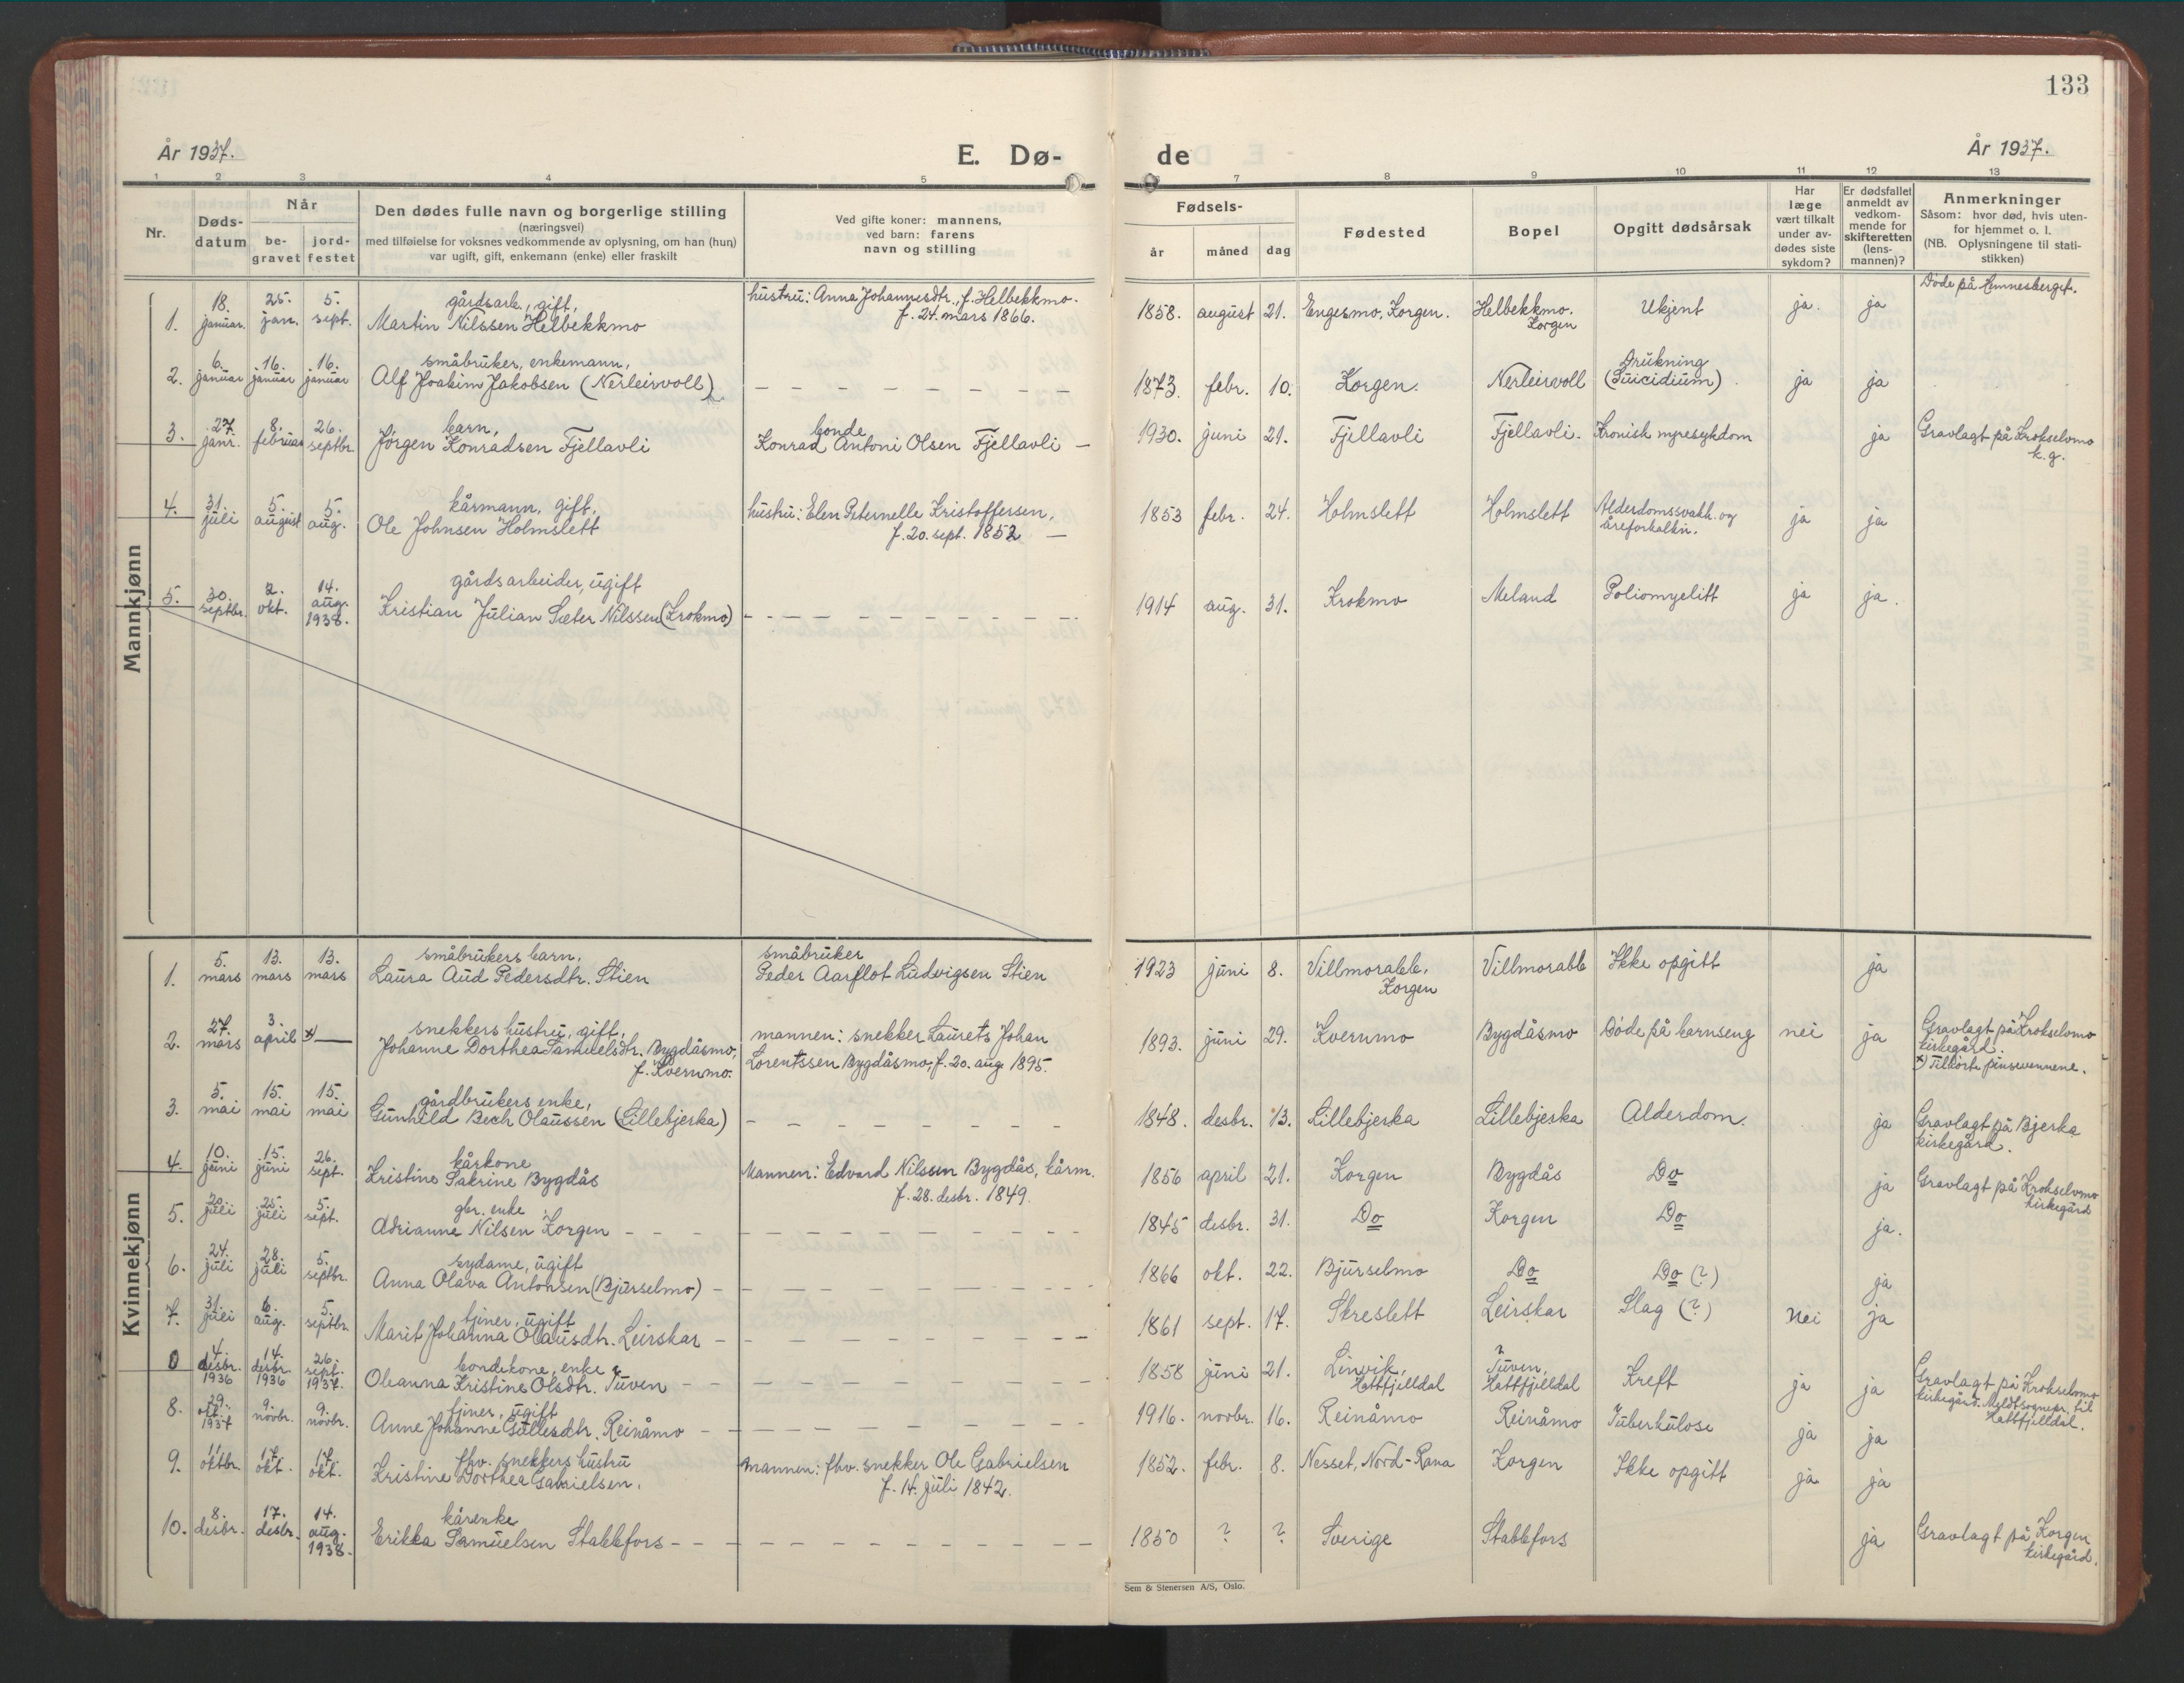 133
År 1937.
E. Dø-
de
År 1937.
1 2 3 4 5 6 7 8 9 10 11 12 13
Nr.
Døds-
datum
Når
be-
gravet
jord-
festet
Den dødes fulle navn og borgerlige stilling
(næringsvei)
med tilføielse for voksnes vedkommende av oplysning, om han (hun)
var ugift, gift, enkemann (enke) eller fraskilt
Ved gifte koner: mannens,
ved barn: farens
navn og stilling
Fødsels-
år
måned
dag
Fødested
Bopel
Opgitt dødsårsak
Har
læge
vært tilkalt
under av-
dødes siste
sykdom?
Er dødsfallet
anmeldt av
vedkom-
mende for
skifteretten
(lens-
mannen)?
Anmerkninger
Såsom: hvor død, hvis uten-
for hjemmet o. l.
(NB. Oplysningene til stati-
stikken)
Mannkjønn
1. 18. januar. 25. jan. 5. sept.
gårdsarb., gift,
Martin Nilssen Helbekkmo
hustru: Anna Johannesdtr., f. Helbekkmo.
f. 24. mars 1866.
1858. august 21. Engesmo, Korgen. Helbekkmo. Korgen Ukjent ja. ja
Døde på Hemnesberget.
2. 6. januar 16. januar 16. januar
småbruker, enkemann,
Alf Joakim Jakobsen (Nerleirvoll)
1873. febr. 10. Korgen. Nerleirvoll Drukning (Suicidium) ja ja
3. 27. janr. 8. februar 26. septbr.
barn,
Jørgen Konradsen Fjellavli
bonde
Konrad Antoni Olsen Fjellavli —
1930. juni 21. Fjellavli Fjellavli. Kronisk nyresykdom ja
Gravlagt på Krokselvmo
k.g.
4. 31. juli 5. august 5. aug.
kårmann, gift,
Ole Johnsen Holmslett
hustru: Elen Peternelle Kristoffersen,
f. 20. sept. 1852 —
1853 febr. 24. Holmslett Holmslett Alderdomssvakh. og åreforkalkn. ja ja
5. 30. septbr. 2. okt. 14. aug. 1938.
gårdsarbeider, ugift
Kristian Julian Sæter Nilssen (Krokmo)
1914 aug. 31. Krokmo Meland Poliomyelitt ja ja.
Kvinnekjønn
1. 5. mars 13. mars 13. mars
småbrukers barn,
Laura Aud Pedersdtr. Stien
småbruker
Peder Aarflot Ludvigsen Stien
1923 juni 8. Villmorabb, Korgen Villmorabb Ikke opgitt ja
2. 27. mars 3. april x) —
snekkers hustru, gift,
Johanne Dorthea Samuelsdtr. Bygdåsmo,
f. Kvernmo.
mannen: snekker Laurets Johan
Lorentssen Bygdåsmo, f. 20. aug. 1895.
1893. juni 29. Kvernmo Bygdåsmo Døde på barnseng nei ja
Gravlagt på Krokselvmo
kirkegård.
x) Tilhørte pinsevennene.
3. 5. mai 15. mai 15. mai
gårdbrukers enke,
Gunhild Bech Olaussen (Lillebjerka)
1848. desbr. 13. Lillebjerka Lillebjerka Alderdom. ja
Gravlagt på Bjerka
kirkegård.
4. 10. juni 15. juni 26. sept.
kårkone
Kristine Sakrine Bygdås
Mannen: Edvard Nilssen Bygdås, kårm.
f. 28. desbr. 1849.
1856 april 21. Korgen Bygdås Do ja
Gravlagt på Krokselvmo
kirkegård
5. 20. juli 25. juli 5. sept.
gbr. enke
Adrianne Nilsen Korgen
1845 desbr. 31. Do Korgen Do ja.
6. 24. juli 28. juli 5. septbr.
sydame, ugift
Anna Olava Antonsen (Bjurselmo)
1866 okt. 22. Bjurselmo Do Do (?) ja
7. 31. juli 6. aug. 5. septbr.
tjener, ugift
Marit Johanna Olausdtr. Leirskar
1861 sept. 17. Skreslett Leirskar Slag (?) Nei ja
0 4. desbr. 1936 14. desbr. 1936 26. sept. 1937.
bondekone, enke
Oleanna Kristine Olsdtr. Tuven
1858 juni 21. Linvik, Hattfjelldal Tuven, Hattfjelldal Kreft ja ja
Gravlagt på Krokselvmo
kirkegård. Meldt sognepr. til
Hattfjelldal.
8. 29. okt. 1937 9. novbr. 9. novbr.
tjener, ugift
Anne Johanne Gullesdtr. Reinåmo
1916. novbr. 16. Reinåmo Reinåmo Tuberkulose ja ja
9. 11. oktbr. 17. okt. 17. okt.
fhv. snekkers hustru
Kristine Dorthea Gabrielsen.
Mannen: fhv. snekker Ole Gabrielsen
f. 14. juli 1842.
1852. febr. 8. Nesset, Nord-Rana Korgen Ikke opgitt ja ja
10. 8. desbr. 17. desbr. 14. aug. 1938.
kårenke
Erikka Samuelsen Stabbfors
1850 ? ? Sverige Stabbfors ja
Gravlagt på Korgen
kirkegård.
Sem & Stenersen A/S, Oslo.